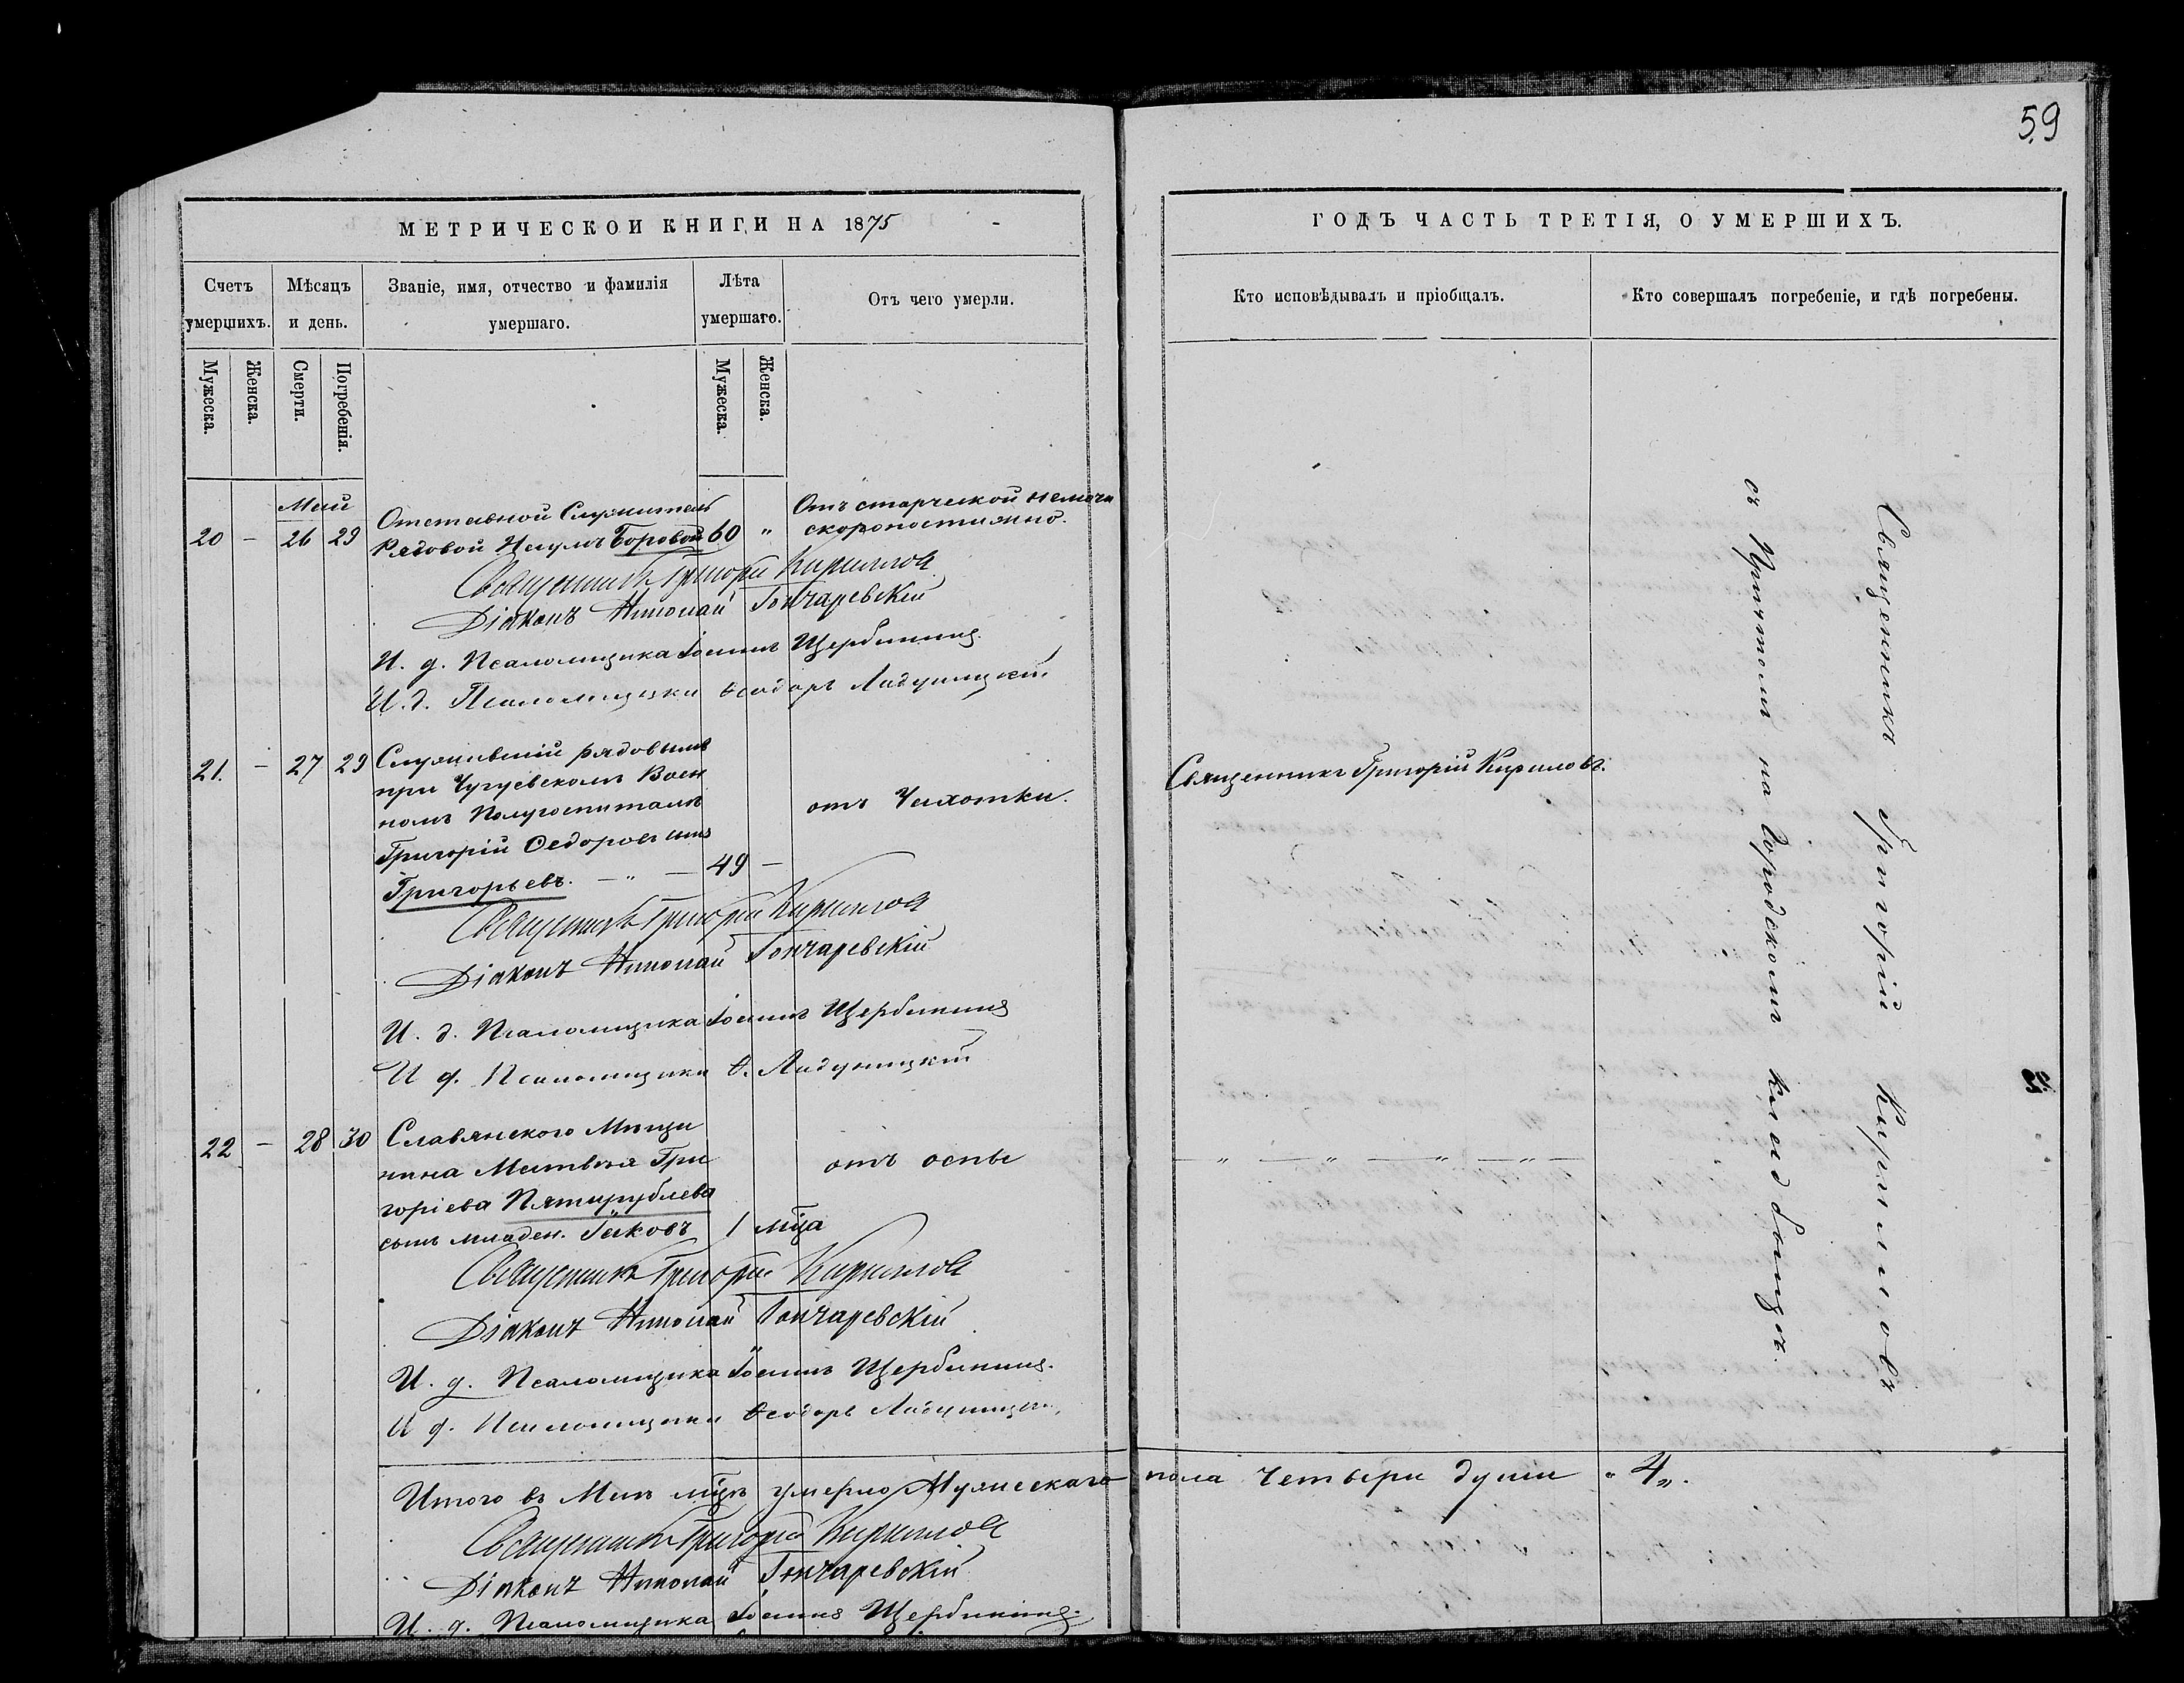 59
МЕТРИЧЕСКОЙ КНИГИ НА 1875
ГОДЪ ЧАСТЬ ТРЕТІЯ, О УМЕРШИХЪ.
Счетъ умершихъ.
Мѣсяцъ и день.
Званіе, имя, отчество и фамилія умершаго.
Лѣта умершаго.
Отъ чего умерли.
Кто исповѣдывалъ и пріобщалъ.
Кто совершалъ погребеніе, и гдѣ погребены.
Мужеска.
Женска.
Смерти.
Погребенія.
Мужеска.
Женска.
Май
20 - 26 29
Отставной Служитель
Рядовой Наумъ Боровой 60 "
Отъ старческой немочи
скоропостижно.
Священникъ Григорій Кирилловъ
Діаконъ Николай Гончаревскій
И. д. Псаломщика Іоаннъ Щербининъ
И. д. Псаломщика Ѳеодоръ
21. - 27 29
Служившій рядовымъ
при Чугуевскомъ Воен
номъ Полугоспиталѣ
Григорій Ѳедоровъ сынъ
Григорьевъ. — " — 49 —
отъ Чахотки.
Священникъ Григорій Кириловъ.
Священникъ Григорій Кирилловъ
Діаконъ Николай Гончаревскій
И. д. Псаломщика Іоаннъ Щербининъ
И д. Псаломщика Ѳ.
22 - 28 30
Славянского Мѣща
нина Матвѣя Гри
горіева Пятирублева
сынъ младен. Іаковъ 1 мѣца
отъ оспы
— " — " — " — " —
Священникъ Григорій Кирилловъ
Діаконъ Николай Гончаревскій
И. д. Псаломщика Іоаннъ Щербининъ.
И д. Псаломщика Ѳеодоръ
Священникъ Григорій Кирилловъ
съ Причтомъ на Городскомъ кладбищѣ.
Итого въ Маѣ мѣцѣ умерло Мужескаго пола четыри души " 4 ".
Священникъ Григорій Кирилловъ
Діаконъ Николай Гончаревскій
И. д. Псаломщика Іоаннъ Щербининъ.